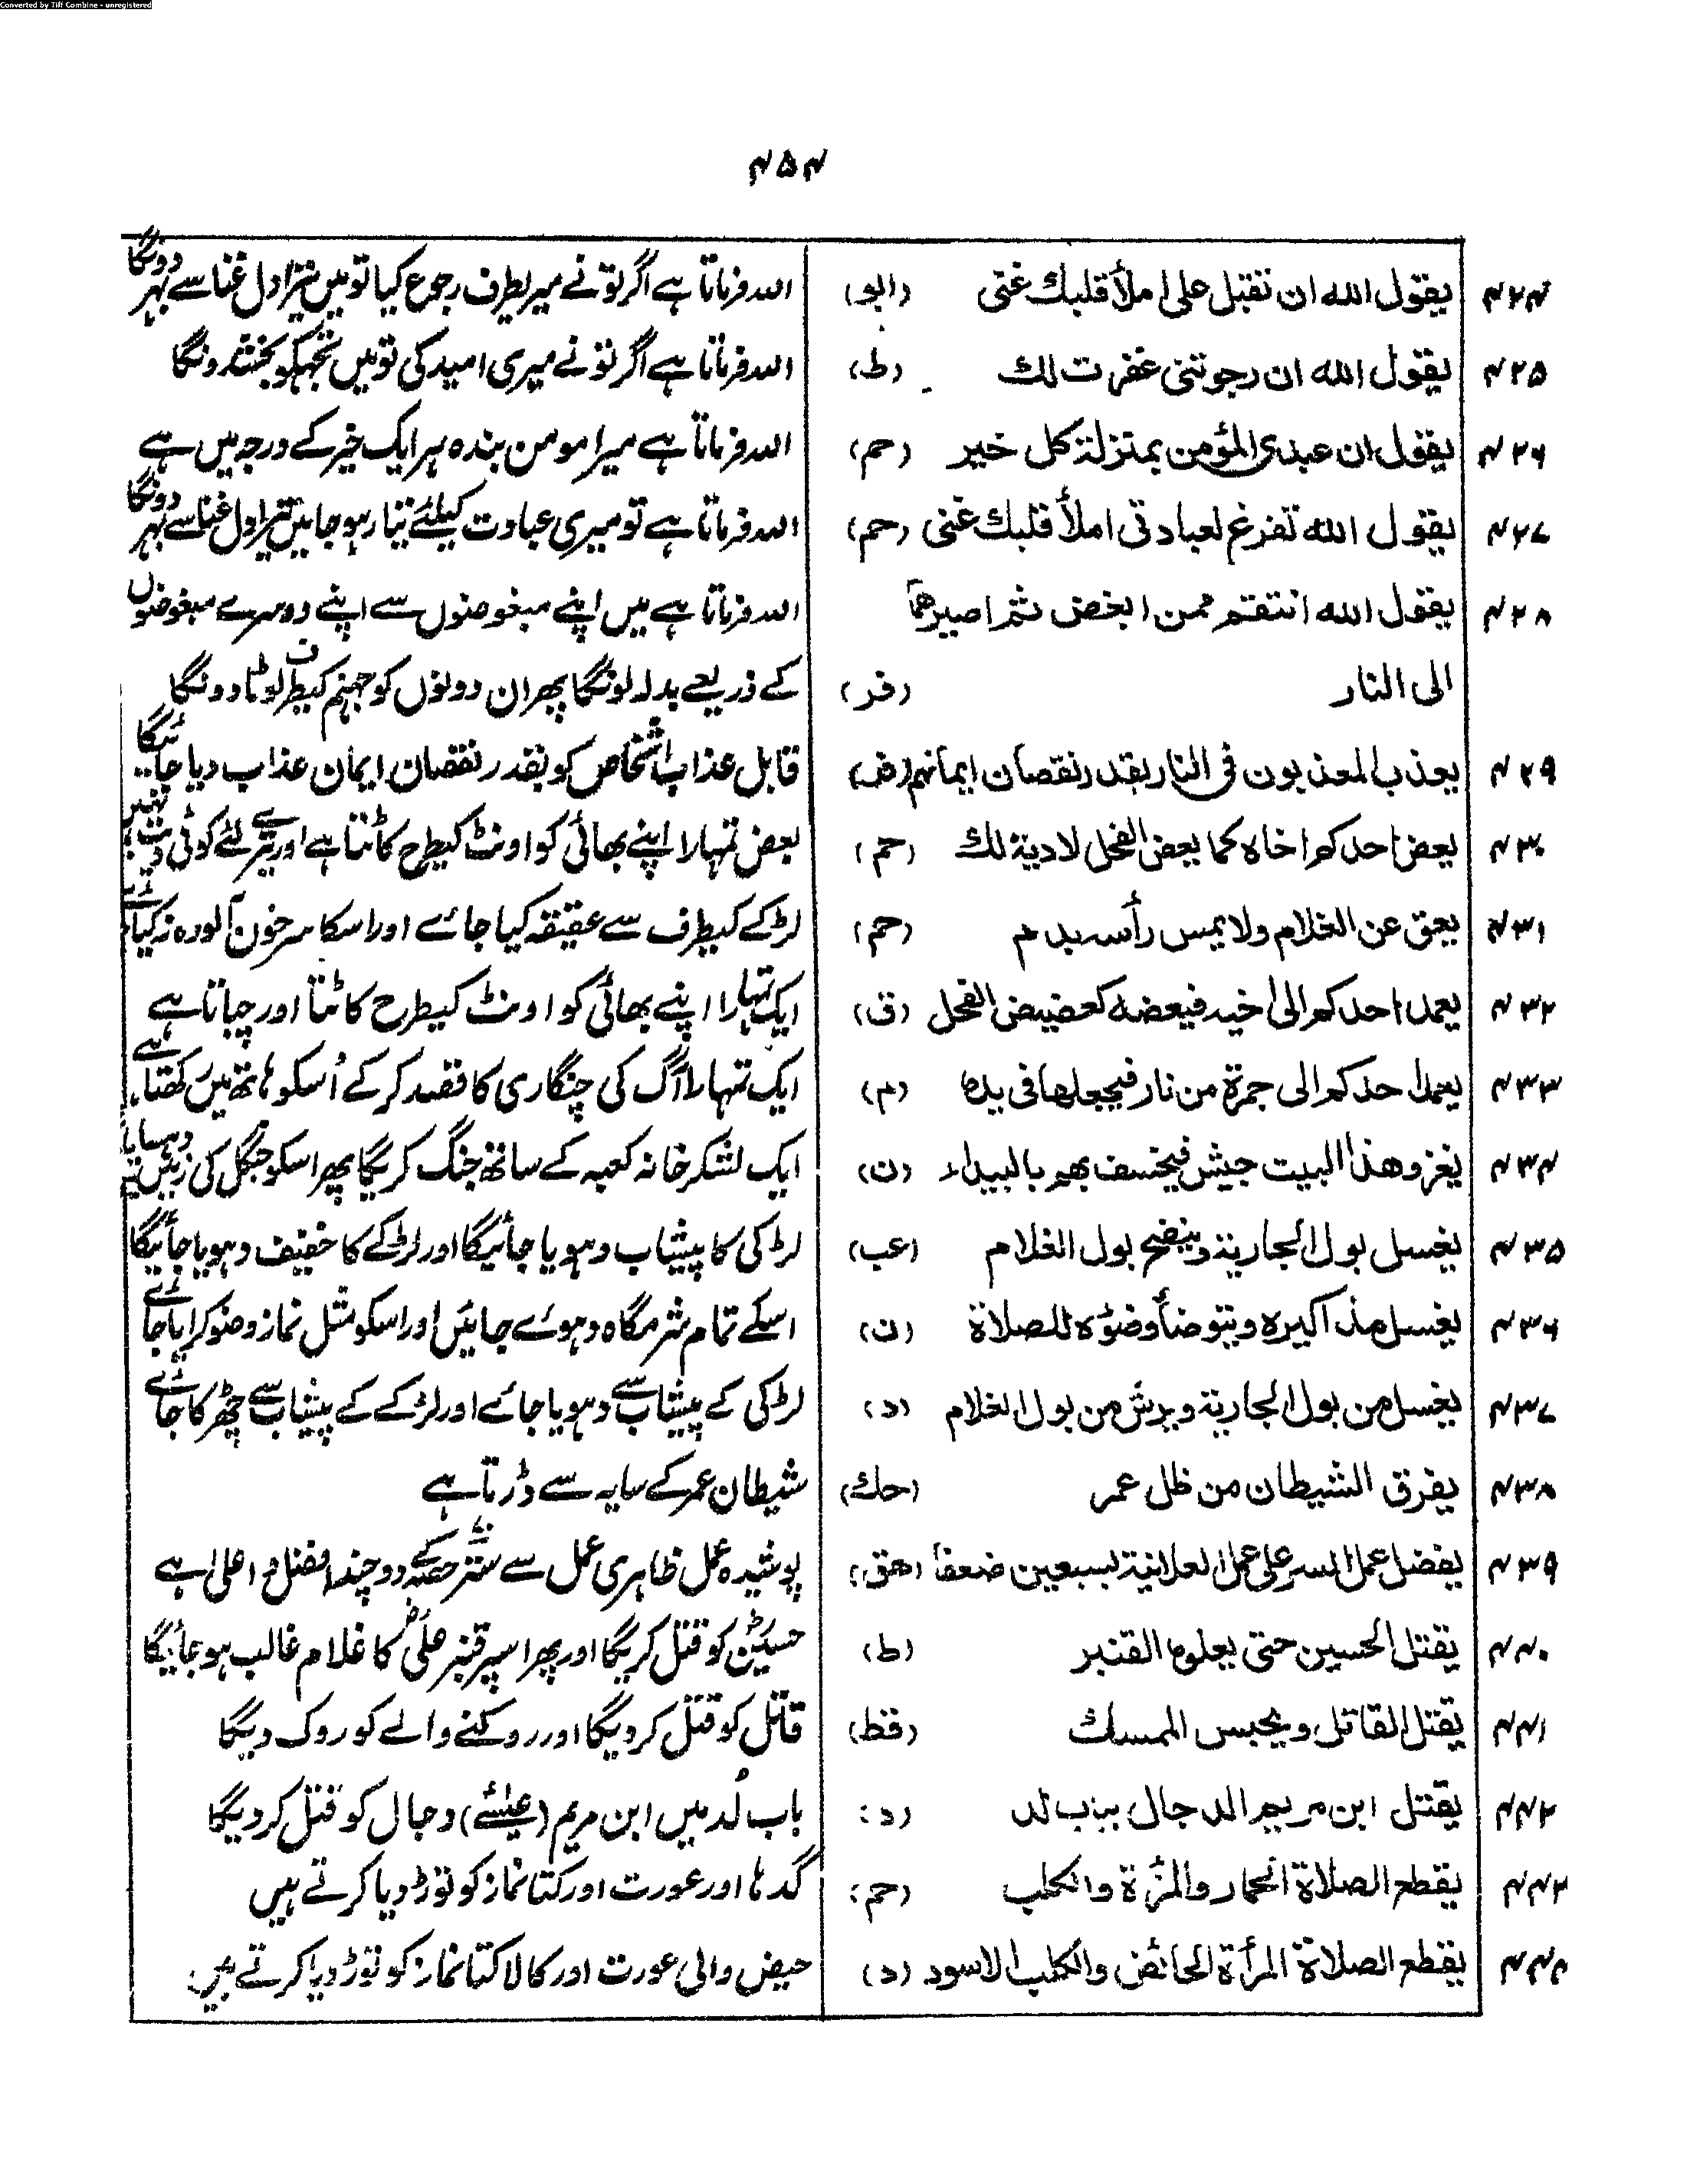 Converted by Tiff Combine - unregistered
۴۵۴
۴۲۴ يقول الله ان تقبل على املأ قلبك غنى (ابو) اللہ فرماتا ہے اگر تو نے میریطرف رجوع کیا تو میں تیرا دل غنا سے بہر دونگا
۴۲۵ يقول الله ان رجوتنى غفرت لك (ط) اللہ فرماتا ہے اگر تو نے میری امید کی تو میں تجہکو بخشدونگا
۴۲۶ يقول ان عبدى المؤمن بمنزلة كل خير (حم) اللہ فرماتا ہے میرا مومن بندہ ہر ایک خیر کے درجہ میں ہے
۴۲۷ يقول الله تفرغ لعبادتى املأ قلبك غنى (حم) اللہ فرماتا ہے تو میری عبادت کیلئے تیار ہو جا میں تیرا دل غنا سے بہر دونگا
۴۲۸ يقول الله انتقم ممن ابغض ثم اصيرهما اللہ فرماتا ہے میں اپنے مبغوضوں سے اپنے دوسرے مبغوضوں
الى النار (فر) کے ذریعے بدلہ لونگا پھر ان دونوں کو جہنم کیطرف لوٹا دونگا
۴۲۹ يعذب المعذبون فى النار بقدر نقصان ايمانهم (ض) قابل عذاب اشخاص کو بقدر نقصان ایمان عذاب دیا جائیگا
۴۳۰ يعض احدكم اخاه كما يعض الفحل لا دية لك (حم) بعض تمہارا اپنے بھائی کو اونٹ کیطرح کاٹتا ہے اور تیرے لئے کوئی دیت نہیں
۴۳۱ يعق عن الغلام ولا يمس رأسه بدم (حم) لڑکے کیطرف سے عقیقہ کیا جائے اور اسکا سر خون آلودہ نہ کیا جائے
۴۳۲ يعمد احدكم الى اخيه فيعضه كعضيض الفحل (ق) ایک تمہارا اپنے بھائی کو اونٹ کیطرح کاٹتا اور چباتا ہے
۴۳۳ يعمد احدكم الى جمرة من نار فيجعلها فى يده (م) ایک تمہارا آگ کی چنگاری کا قصد کر کے اُسکو ہاتھ میں رکھتا ہے
۴۳۴ يغزو هذا البيت جيش فيخسف بهم بالبيداء (ن) ایک لشکر خانہ کعبہ کے ساتھ جنگ کریگا پھر اسکو جنگل کی زمین میں
۴۳۵ يغسل بول الجارية وينضح بول الغلام (عب) لڑکی کا پیشاب دہویا جائیگا اور لڑکے کا خفیف دہویا جائیگا
۴۳۶ يغسل مذاكيره ويتوضأ وضوءه للصلاة (ن) اسکے تمام شرمگاہ دہوئے جائیں اور اسکو مثل نماز وضو کرایا جائے
۴۳۷ يغسل من بول الجارية ويرش من بول الغلام (د) لڑکی کے پیشاب سے دہویا جائے اور لڑکے کے پیشاب سے چھڑکا جائے
۴۳۸ يفرق الشيطان من ظل عمر (حك) شیطان عمر کے سایہ سے ڈرتا ہے
۴۳۹ يفضل عمل السر على عمل العلانية بسبعين ضعفا (هق) پوشیدہ عمل ظاہری عمل سے ستر حصہ کے دوچند افضل و اعلیٰ ہے
۴۴۰ يقتل الحسين حتى يعلوه القنبر (ط) حسین کو قتل کریگا اور پھر اسپر قنبر علی کا غلام غالب ہو جائیگا
۴۴۱ يقتل القاتل ويحبس الممسك (قط) قاتل کو قتل کر دیگا اور روکنے والے کو روک دیگا
۴۴۲ يقتل ابن مريم الدجال بباب لد (د) باب لُد میں ابن مریم (عیسےٰ) دجال کو قتل کر دیگا
۴۴۳ يقطع الصلاة الحمار والمرأة والكلب (حم) گدہا اور عورت اور کتا نماز کو توڑ دیا کرتے ہیں
۴۴۴ يقطع الصلاة المرأة الحائض والكلب الاسود (د) حیض والی عورت اور کالا کتا نماز کو توڑ دیا کرتے ہیں